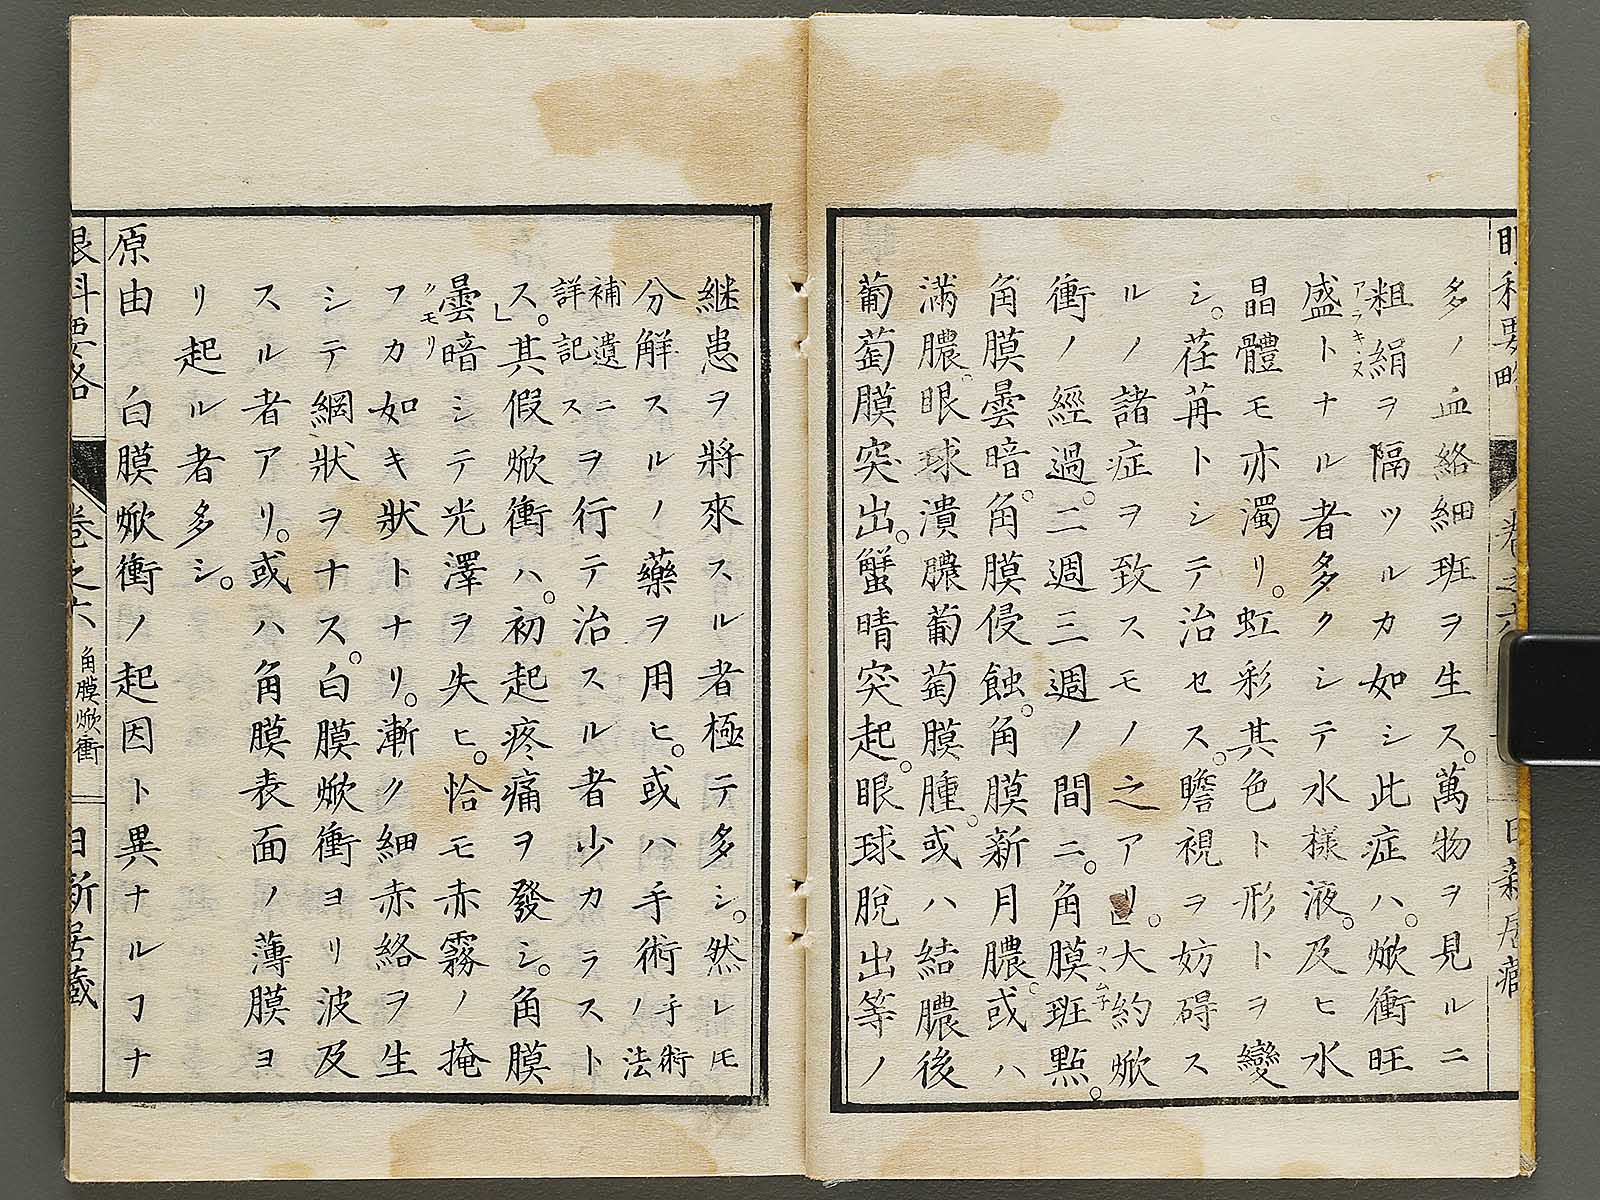 多ノ血絡細班ヲ生ス。萬物ヲ見ルニ
粗絹ヲ隔ツルカ如シ此症ハ。焮衝旺
アラキヌ
盛トナル者多クシテ水樣液。及ヒ水
晶體モ亦濁リ。虹彩其色ト形トヲ變
シ。荏苒トシテ治セス。瞻視ヲ妨碍ス
ルノ諸症ヲ致スモノ之アリ。」大約焮
衝ノ經過。二週三週ノ間ニ。角膜班點。
角膜曇暗。角膜侵蝕。角膜新月膿。或ハ
滿膿。眼球潰膿葡萄膜腫。或ハ結膿後
葡萄膜突出。蟹睛突起。眼球脫出等ノ
継患ヲ將來スル者極テ多シ。然レ𪜈
分解スルノ藥ヲ用ヒ。或ハ手術ノ手術法
補遺ニ詳記スヲ行テ治スル者少カラスト
ス。」其假焮衝ハ。初起疼痛ヲ發シ。角膜
曇暗シテ光澤ヲ失ヒ。恰モ赤霧ノ掩
クモリ
フカ如キ狀トナリ。漸ク細赤絡ヲ生
シテ網狀ヲナス。白膜焮衝ヨリ波及
スル者アリ。或ハ角膜表面ノ薄膜ヨ
リ起ル者多シ。
原由　白膜焮衝ノ起因ト異ナルヿナ
眼科要略　卷之六　角膜焮衝　日新居藏